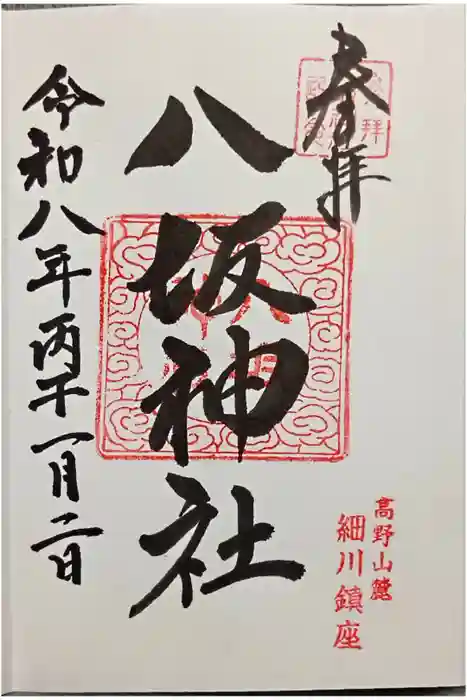 奉拝
八坂神社
令和八年丙午一月二日
高野山麓
細川鎮座